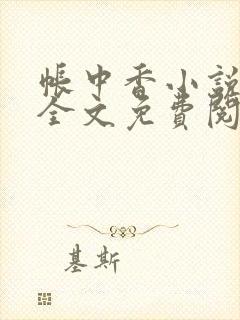 帳中香小說
全文免費閱
基斯